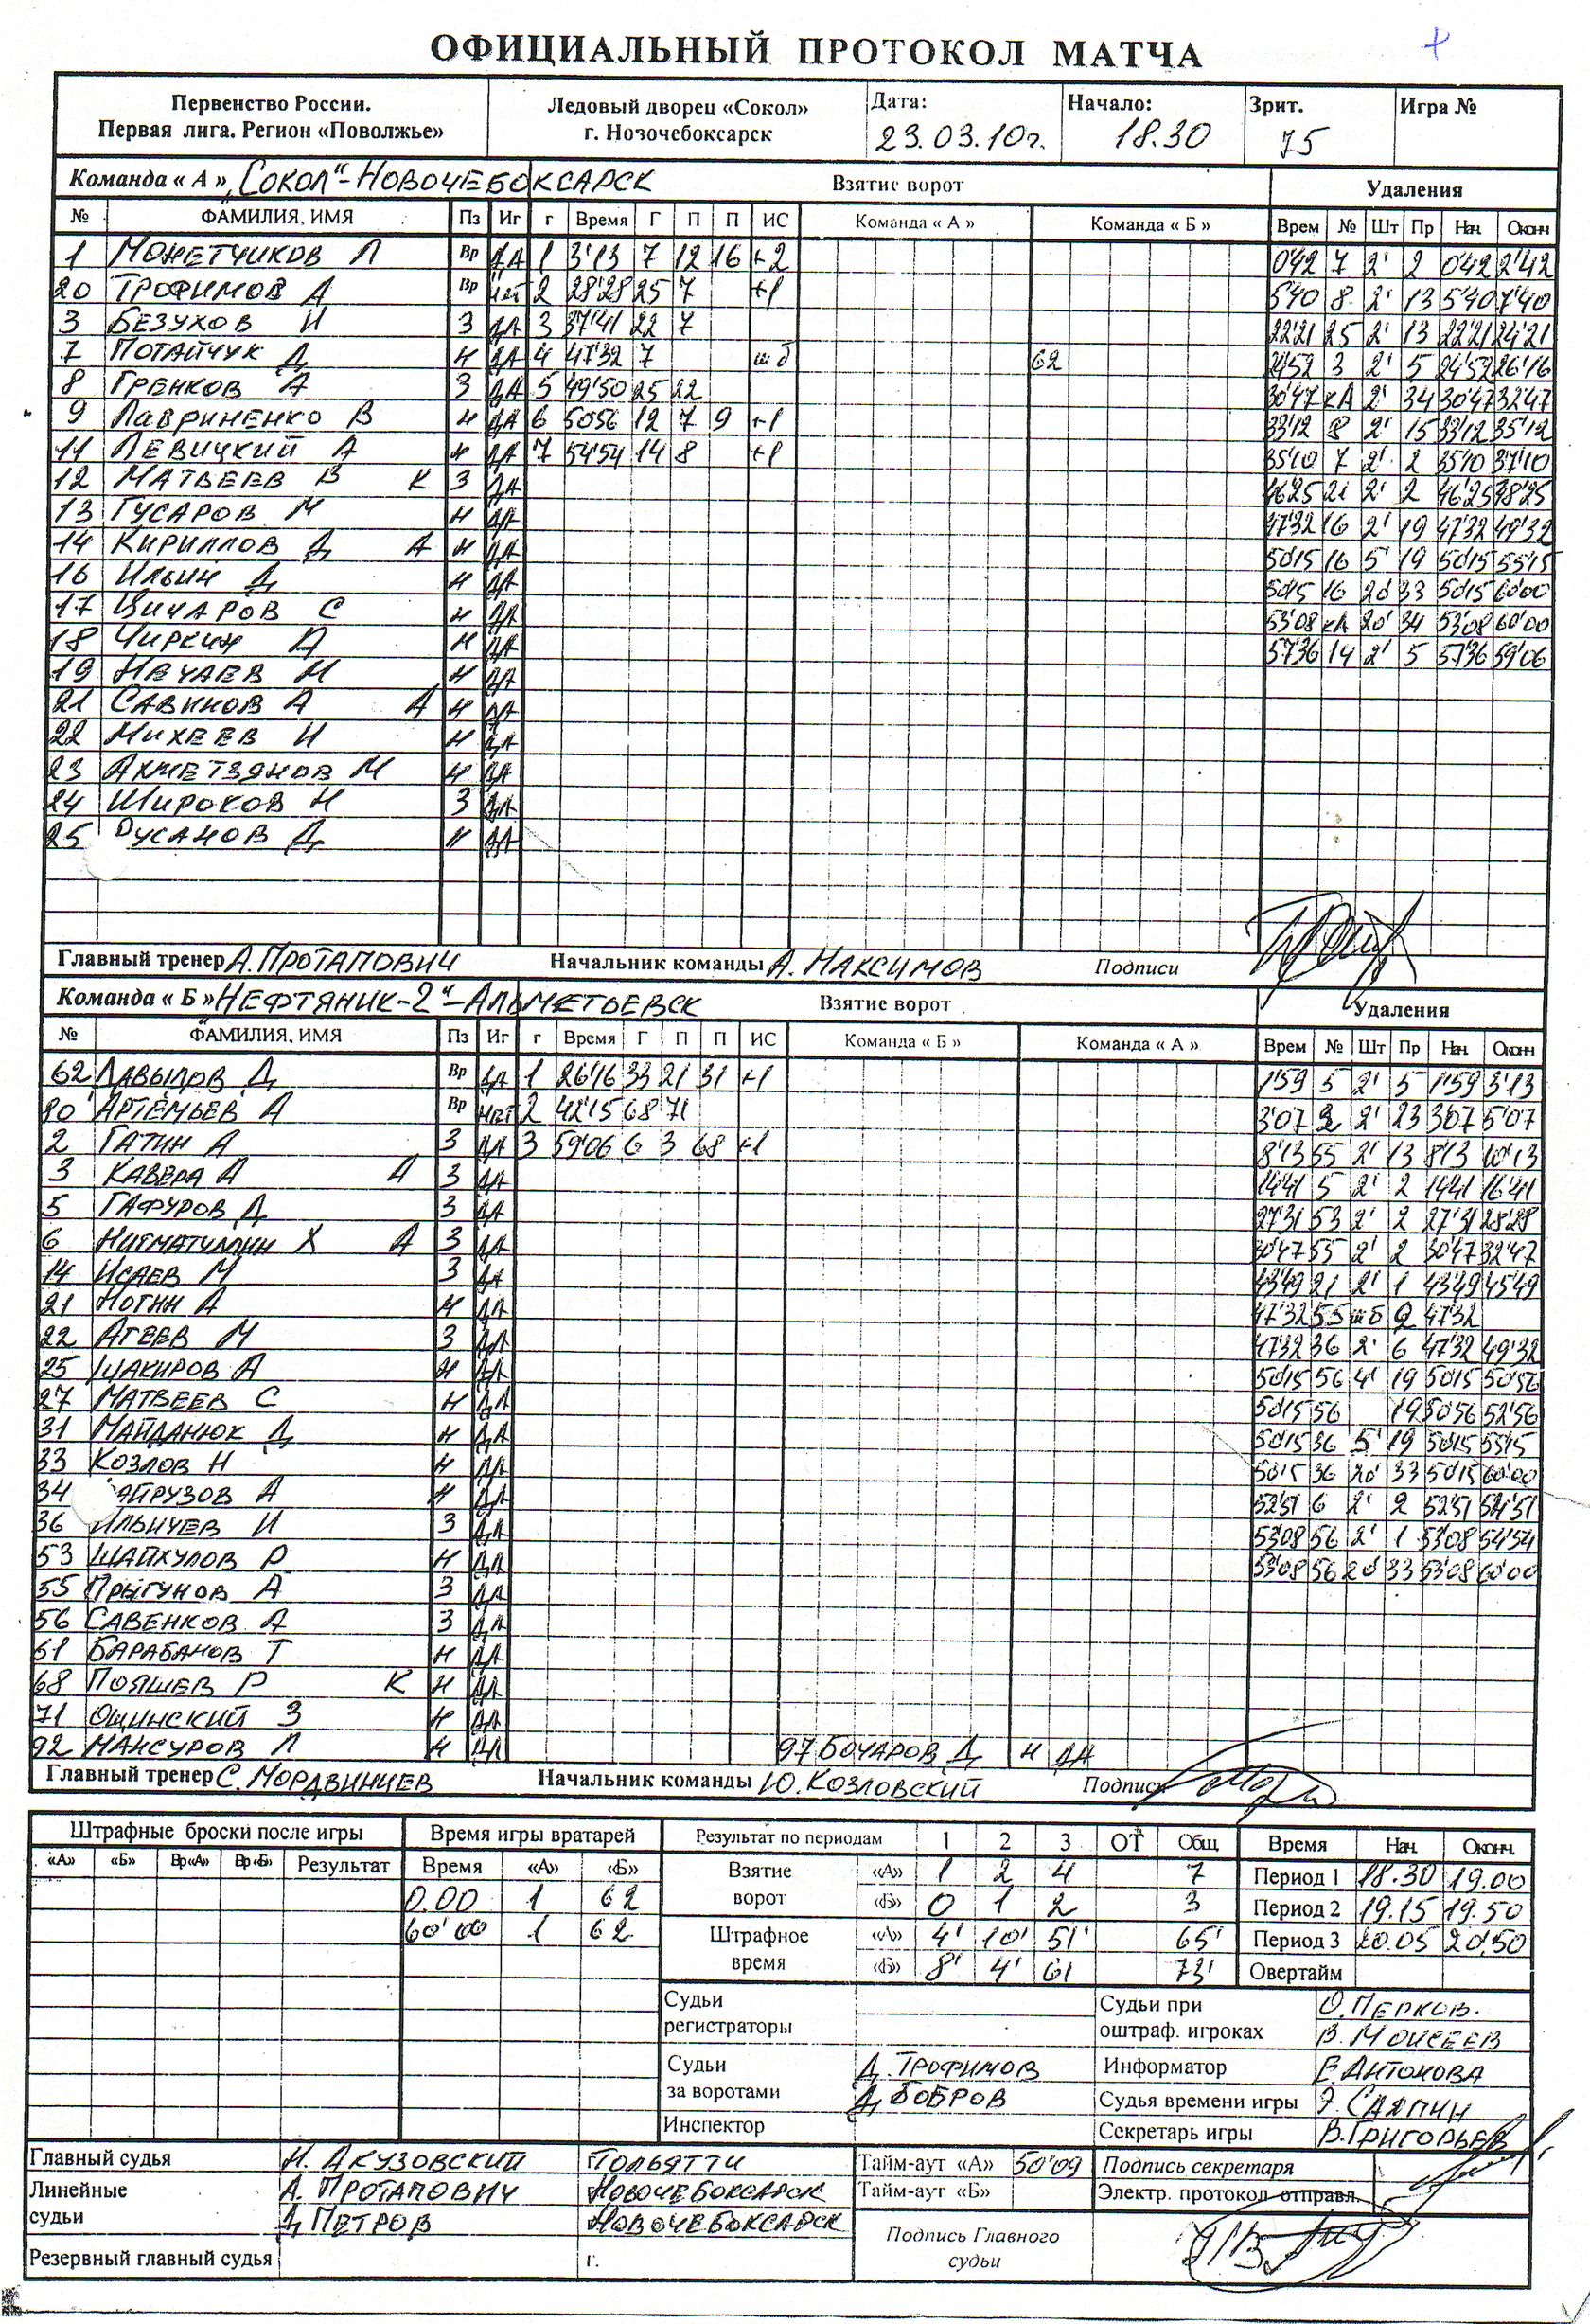 ОФИЦИАЛЬНЫЙ ПРОТОКОЛ МАТЧА
Первенство России. Ледовый дворец «Сокол» Дата: Начало: Зрит. Игра №
Первая лига. Регион «Поволжье» г. Нозочебоксарск 23.03.10г. 18.30 75
Команда « А » „Сокол“-Новочебоксарск Взятие ворот Удаления
№ ФАМИЛИЯ, ИМЯ Пз Иг г Время Г П П ИС Команда « А » Команда « Б » Врем № Шт Пр Нач. Оконч
1 Монетчиков Л Вр ДА 1 3'13 7 12 16 +2 0'42 7 2' 2 0'42 2'42
20 Трофимов А Вр нет 2 28'28 25 7 +1 5'40 8 2' 13 5'40 7'40
3 Безухов И З ДА 3 37'41 22 7 22'21 25 2' 13 22'21 24'21
7 Потайчук Д Н ДА 4 47'32 7 шб 62 24'52 3 2' 5 24'52 26'16
8 Гренков А З ДА 5 49'50 25 22 30'47 кА 2' 34 30'47 32'47
9 Лавриненко В Н ДА 6 50'56 12 7 9 +1 33'12 8 2' 15 33'12 35'12
11 Левицкий А Н ДА 7 54'54 14 8 +1 35'10 7 2' 2 35'10 37'10
12 Матвеев В К З ДА 46'25 21 2' 2 46'25 48'25
13 Гусаров М Н ДА 47'32 16 2' 19 47'32 49'32
14 Кириллов Д А Н ДА 50'15 16 5' 19 50'15 55'15
16 Ильин Д Н ДА 50'15 16 20' 33 50'15 60'00
17 Цичаров С Н ДА 53'08 кА 20' 34 53'08 60'00
18 Чиркин А Н ДА 57'36 14 2' 5 57'36 59'06
19 Нечаев Н Н ДА
21 Савинов А А Н ДА
22 Михеев И Н ДА
23 Ахметзянов М Н ДА
24 Широков Н З ДА
25 Русанов Д Н ДА
Главный тренер А. Протапович Начальник команды А. Максимов Подписи
Команда « Б » „Нефтяник-2“-Альметьевск Взятие ворот Удаления
№ ФАМИЛИЯ, ИМЯ Пз Иг г Время Г П П ИС Команда « Б » Команда « А » Врем № Шт Пр Нач. Оконч
62 Давыдов Д Вр ДА 1 26'16 33 21 31 +1 1'59 5 2' 5 1'59 3'13
Артемьев А Вр нет 2 42'15 68 71 3'07 2 2' 23 3'07 5'07
2 Гатин А З ДА 3 59'06 6 3 68 +1 8'13 55 2' 13 8'13 10'13
3 Кавера А А З ДА 14'41 5 2' 2 14'41 16'41
5 Гафуров Д З ДА 27'31 53 2' 2 27'31 28'28
6 Нигматуллин Х А З ДА 30'47 55 2' 2 30'47 32'47
14 Исаев М З ДА 43'49 21 2' 1 43'49 45'49
21 Ногин А Н ДА 47'32 55 шб 9 47'32
22 Агеев М З ДА 47'32 36 2' 6 47'32 49'32
25 Шакиров А Н ДА 50'15 56 4' 19 50'15 50'56
27 Матвеев С Н ДА 50'15 56 19 50'56 52'56
31 Майданюк Д Н ДА 50'15 36 5' 19 50'15 55'15
33 Козлов Н Н ДА 50'15 36 20' 33 50'15 60'00
34 айрузов А Н ДА 52'51 6 2' 2 52'51 54'51
36 Ильичев И З ДА 53'08 56 2' 1 53'08 54'54
53 Шайхулов Р Н ДА 53'08 56 20' 33 53'08 60'00
55 Прыгунов А З ДА
56 Савенков А З ДА
61 Барабанов Т Н ДА
68 Пояшев Р К Н ДА
71 Ощинский З Н ДА
92 Мансуров Л Н ДА 97 Бочаров Д Н ДА
Главный тренер С. Мордвинцев Начальник команды Ю. Козловский Подписи
Штрафные броски после игры Время игры вратарей Результат по периодам 1 2 3 ОТ Общ. Время Нач. Оконч.
«А» «Б» Вр«А» Вр«Б» Результат Время «А» «Б» Взятие ворот «А» 1 2 4 7 Период 1 18.30 19.00
0.00 1 62 «Б» 0 1 2 3 Период 2 19.15 19.50
60'00 1 62 Штрафное время «А» 4' 10' 51' 65' Период 3 20.05 20.50
«Б» 8' 4' 61 73' Овертайм
Судьи регистраторы Судьи при оштраф. игроках О. Перков.
В. Моисеев
Судьи за воротами Д. Трофимов Информатор Е. Антонова
Д. Бобров Судья времени игры Э. Саапин
Инспектор Секретарь игры В. Григорьев
Главный судья Н. Акузовский г. Тольятти Тайм-аут «А» 50'09 Подпись секретаря
Линейные судьи А. Протапович Новочебоксарск Тайм-аут «Б» Электр. протокол отправл.
Д Петров Новочебоксарск Подпись Главного судьи
Резервный главный судья г.